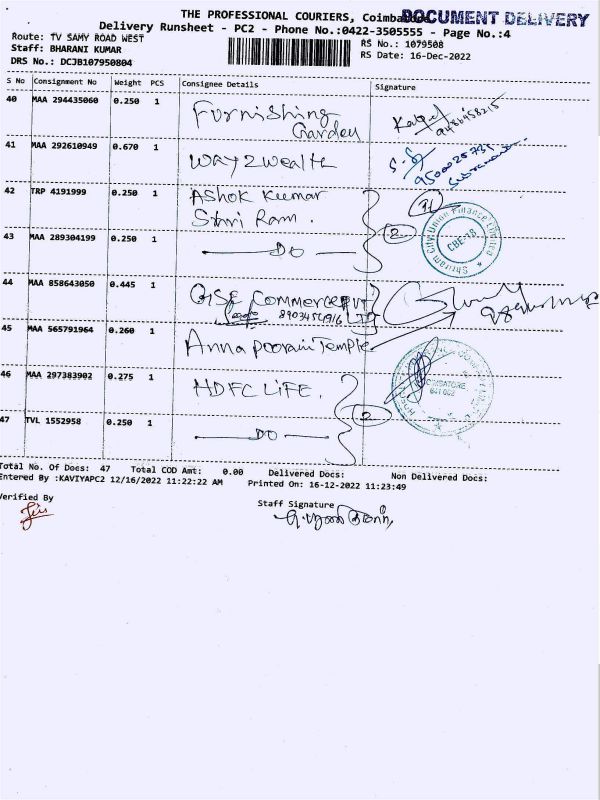 THE PROFESSIONAL COURIERS, Coimbatore
DOCUMENT DELIVERY
Delivery Runsheet - PC2 - Phone No.:0422-3505555 - Page No.:4
Route: TV SAMY ROAD WEST
Staff: BHARANI KUMAR
DRS No.: DCJB107950804
RS No.: 1079508
RS Date: 16-Dec-2022
S No Consignment No Weight PCS Consignee Details Signature
40 MAA 294435060 0.250 1 Furnishing
Garden
9486458215
41 MAA 292610949 0.670 1 way2wealth
42 TRP 4191999 0.250 1 Ashok Kumar
Shri Ram.
2
91
Shriram City Union Finance Limited
CBE-18
43 MAA 289304199 0.250 1 DO
44 MAA 858643050 0.445 1 GSE Commerce PVT
LTD
45 MAA 565791964 0.260 1 Anna Poorani Temple
46 MAA 297383902 0.275 1 HDFC LIFE.
COIMBATORE
641 002
2
47 TVL 1552958 0.250 1 DO
Total No. Of Docs: 47 Total COD Amt: 0.00 Delivered Docs: Non Delivered Docs:
Entered By :KAVIYAPC2 12/16/2022 11:22:22 AM Printed On: 16-12-2022 11:23:49
Verified By
Staff Signature